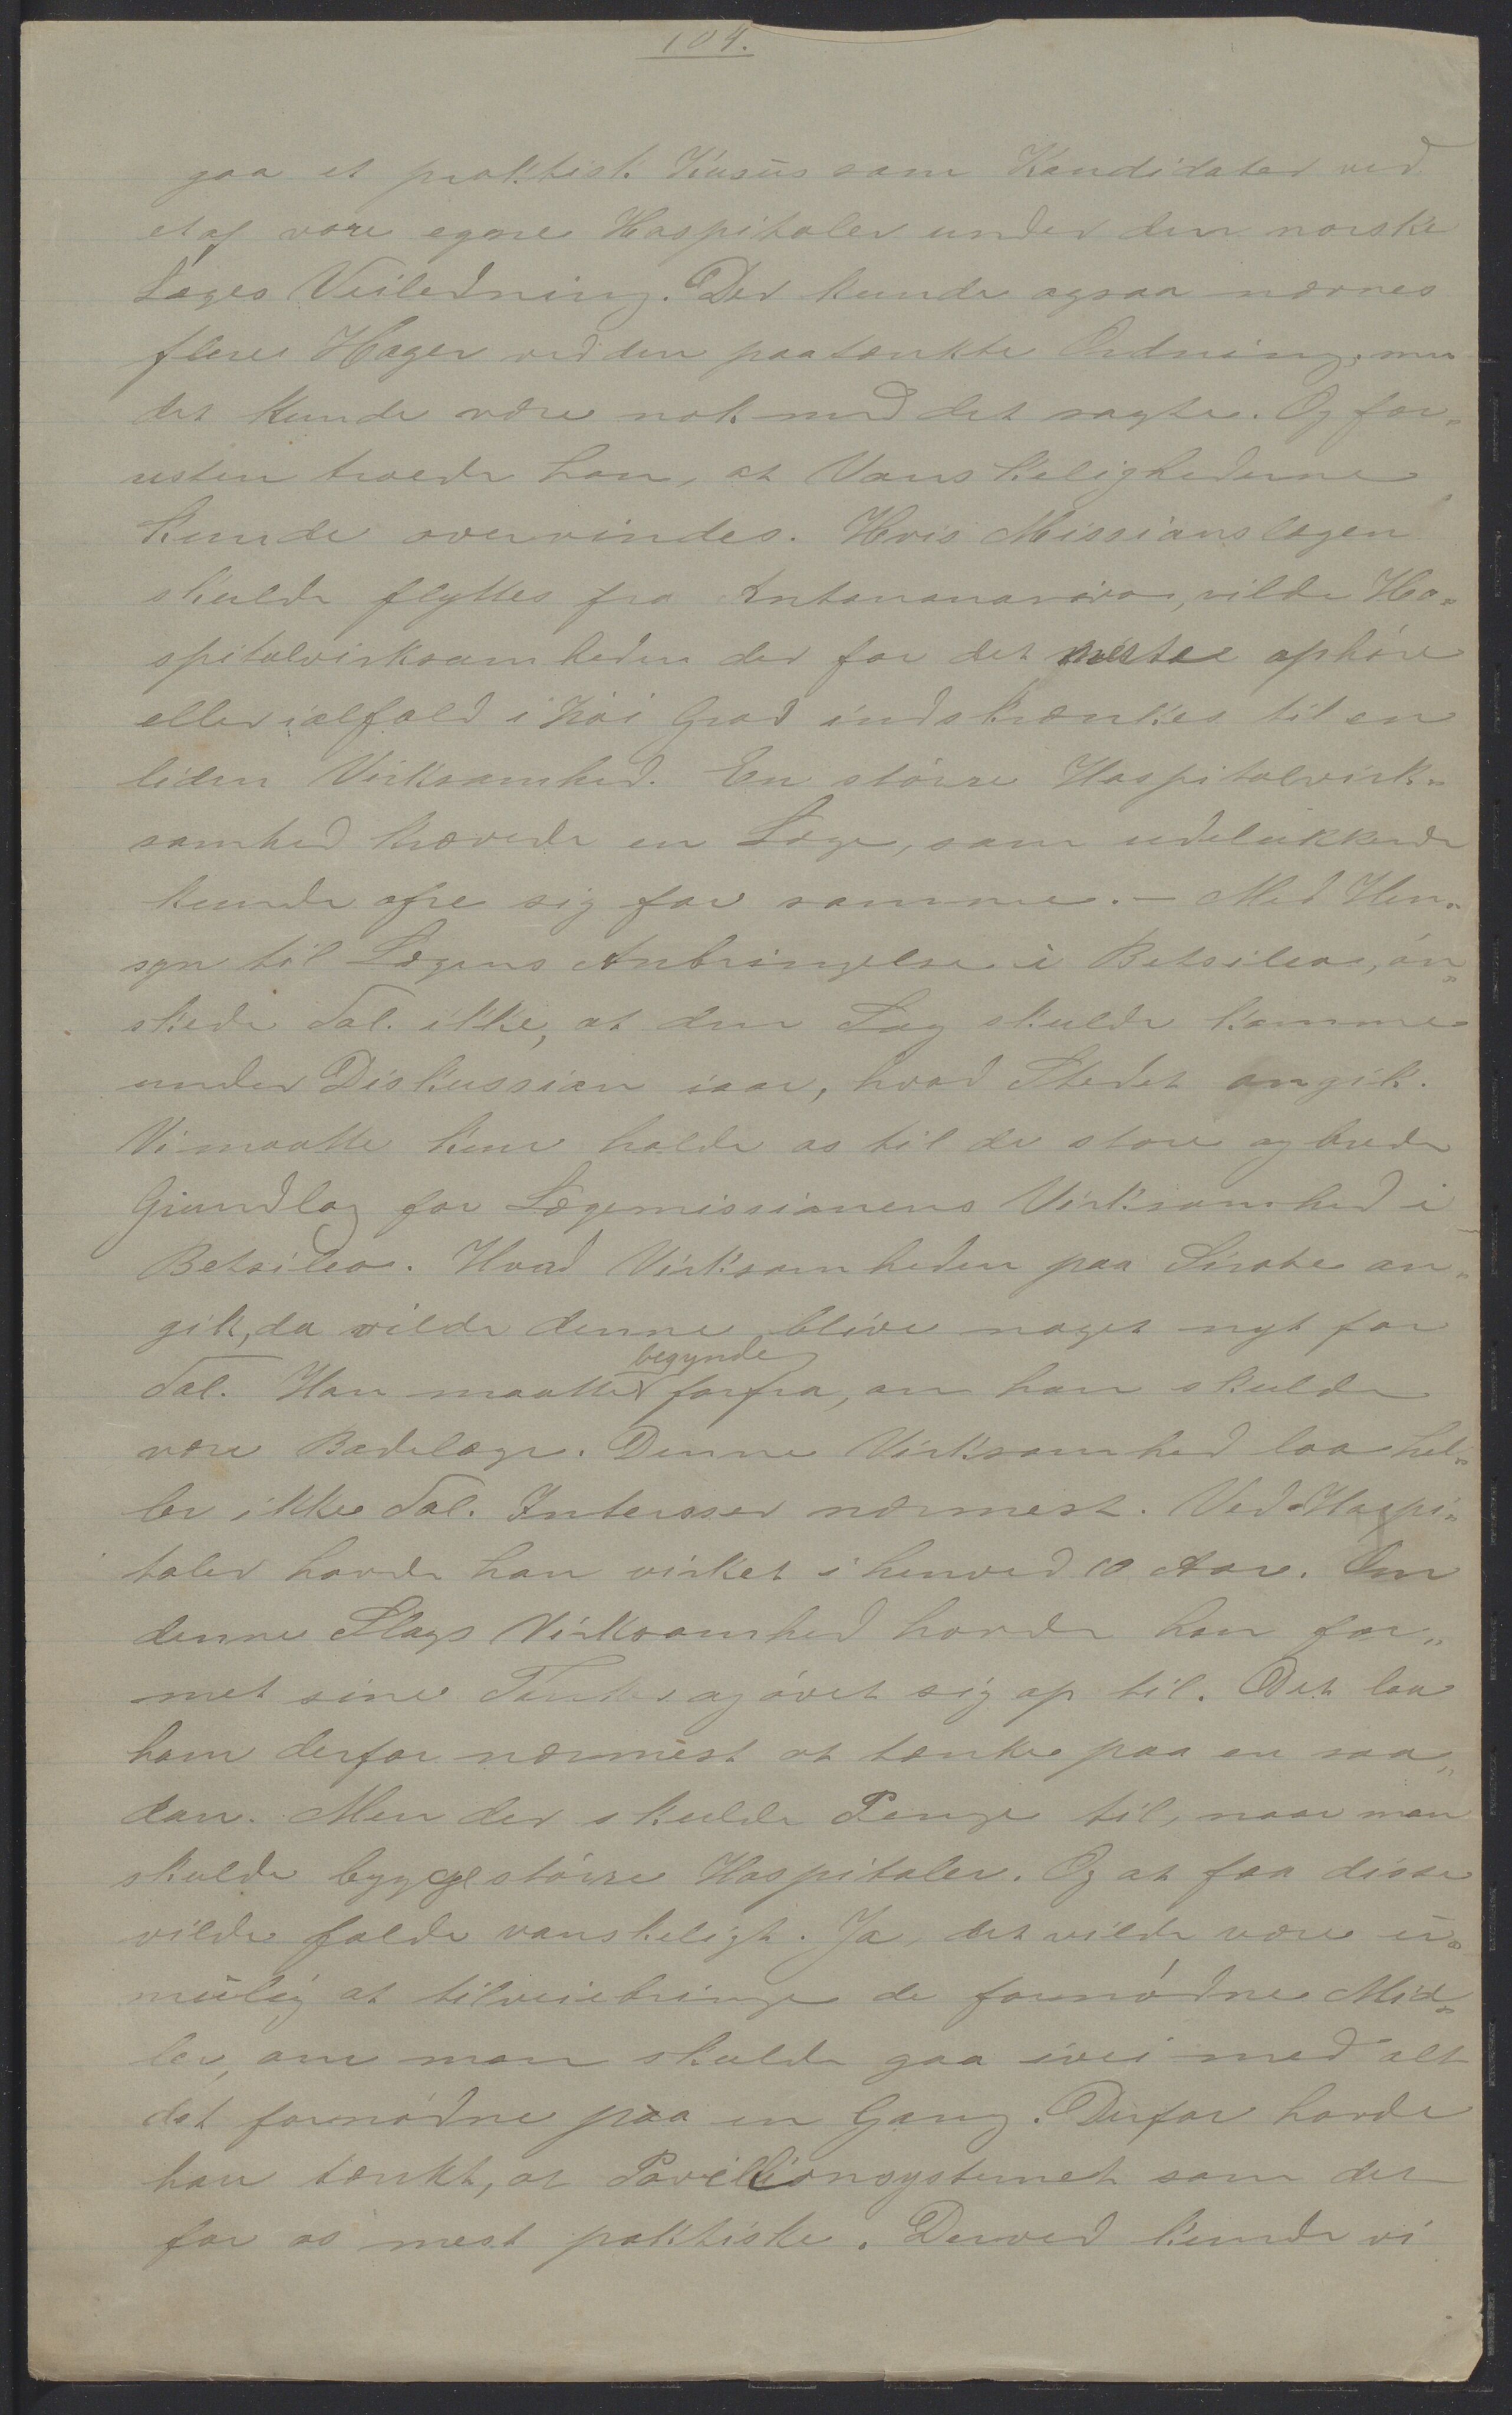 104.
gaa et praktisk Kusus som Kandidater ved
et af vore egne Hospitaler under den norske
Læges Veiledning. Der kunde ogsaa nævnes
flere Hager ved den paatænkte Ordning, men
det kunde være nok med det sagte. Og for„
resten troede han, at Vanskelighederne
kunde overvindes. Hvis Missionslægen
skulde flyttes fra Antananarivo, vilde Ho„
spitalvirksomheden der for det meste ophøre
eller ialfald i høi Grad indskrænkes til en
liden Virksomhed. En større Hospitalvirk„
somhed krævede en Læge, som udelukkende
kunde ofre sig for samme. – Med Hen„
syn til Lægens Anbringelse i Betsileo, øn„
skede Tal. ikke, at den Sag skulde komme
under Diskussion iaar, hvad Stedet angik.
Vi maatte kun holde os til de store og brede
Grundlag for Lægemissionens Virksomhed i
Betsileo. Hvad Virksomheden paa Sirabe an„
gik, da vilde denne blive noget nyt for
begynde
Tal. Han maatte forfra, om han skulde
være Badelæge. Denne Virksomhed laa hel„
ler ikke Tal. Interesser nærmest. Ved Hospi„
taler havde han virket i henved 10 Aar. Om
denne Slags Virksomhed havde han for„
met sine Tanker og øvet sig op til. Det laa
ham derfor nærmest at tænke paa en saa„
dan. Men der skulde Penge til, naar man
skulde bygge større Hospitaler. Og at faa disse
vilde falde vanskeligt. Ja, det vilde være u„
mulig at tilveiebringe de fornødne Mid„
ler, om man skulde gaa ivei med alt
det fornødne paa en Gang. Derfor havde
han tænkt, at Pavillionsystemet som det
for os mest paktiske. Derved kunde vi